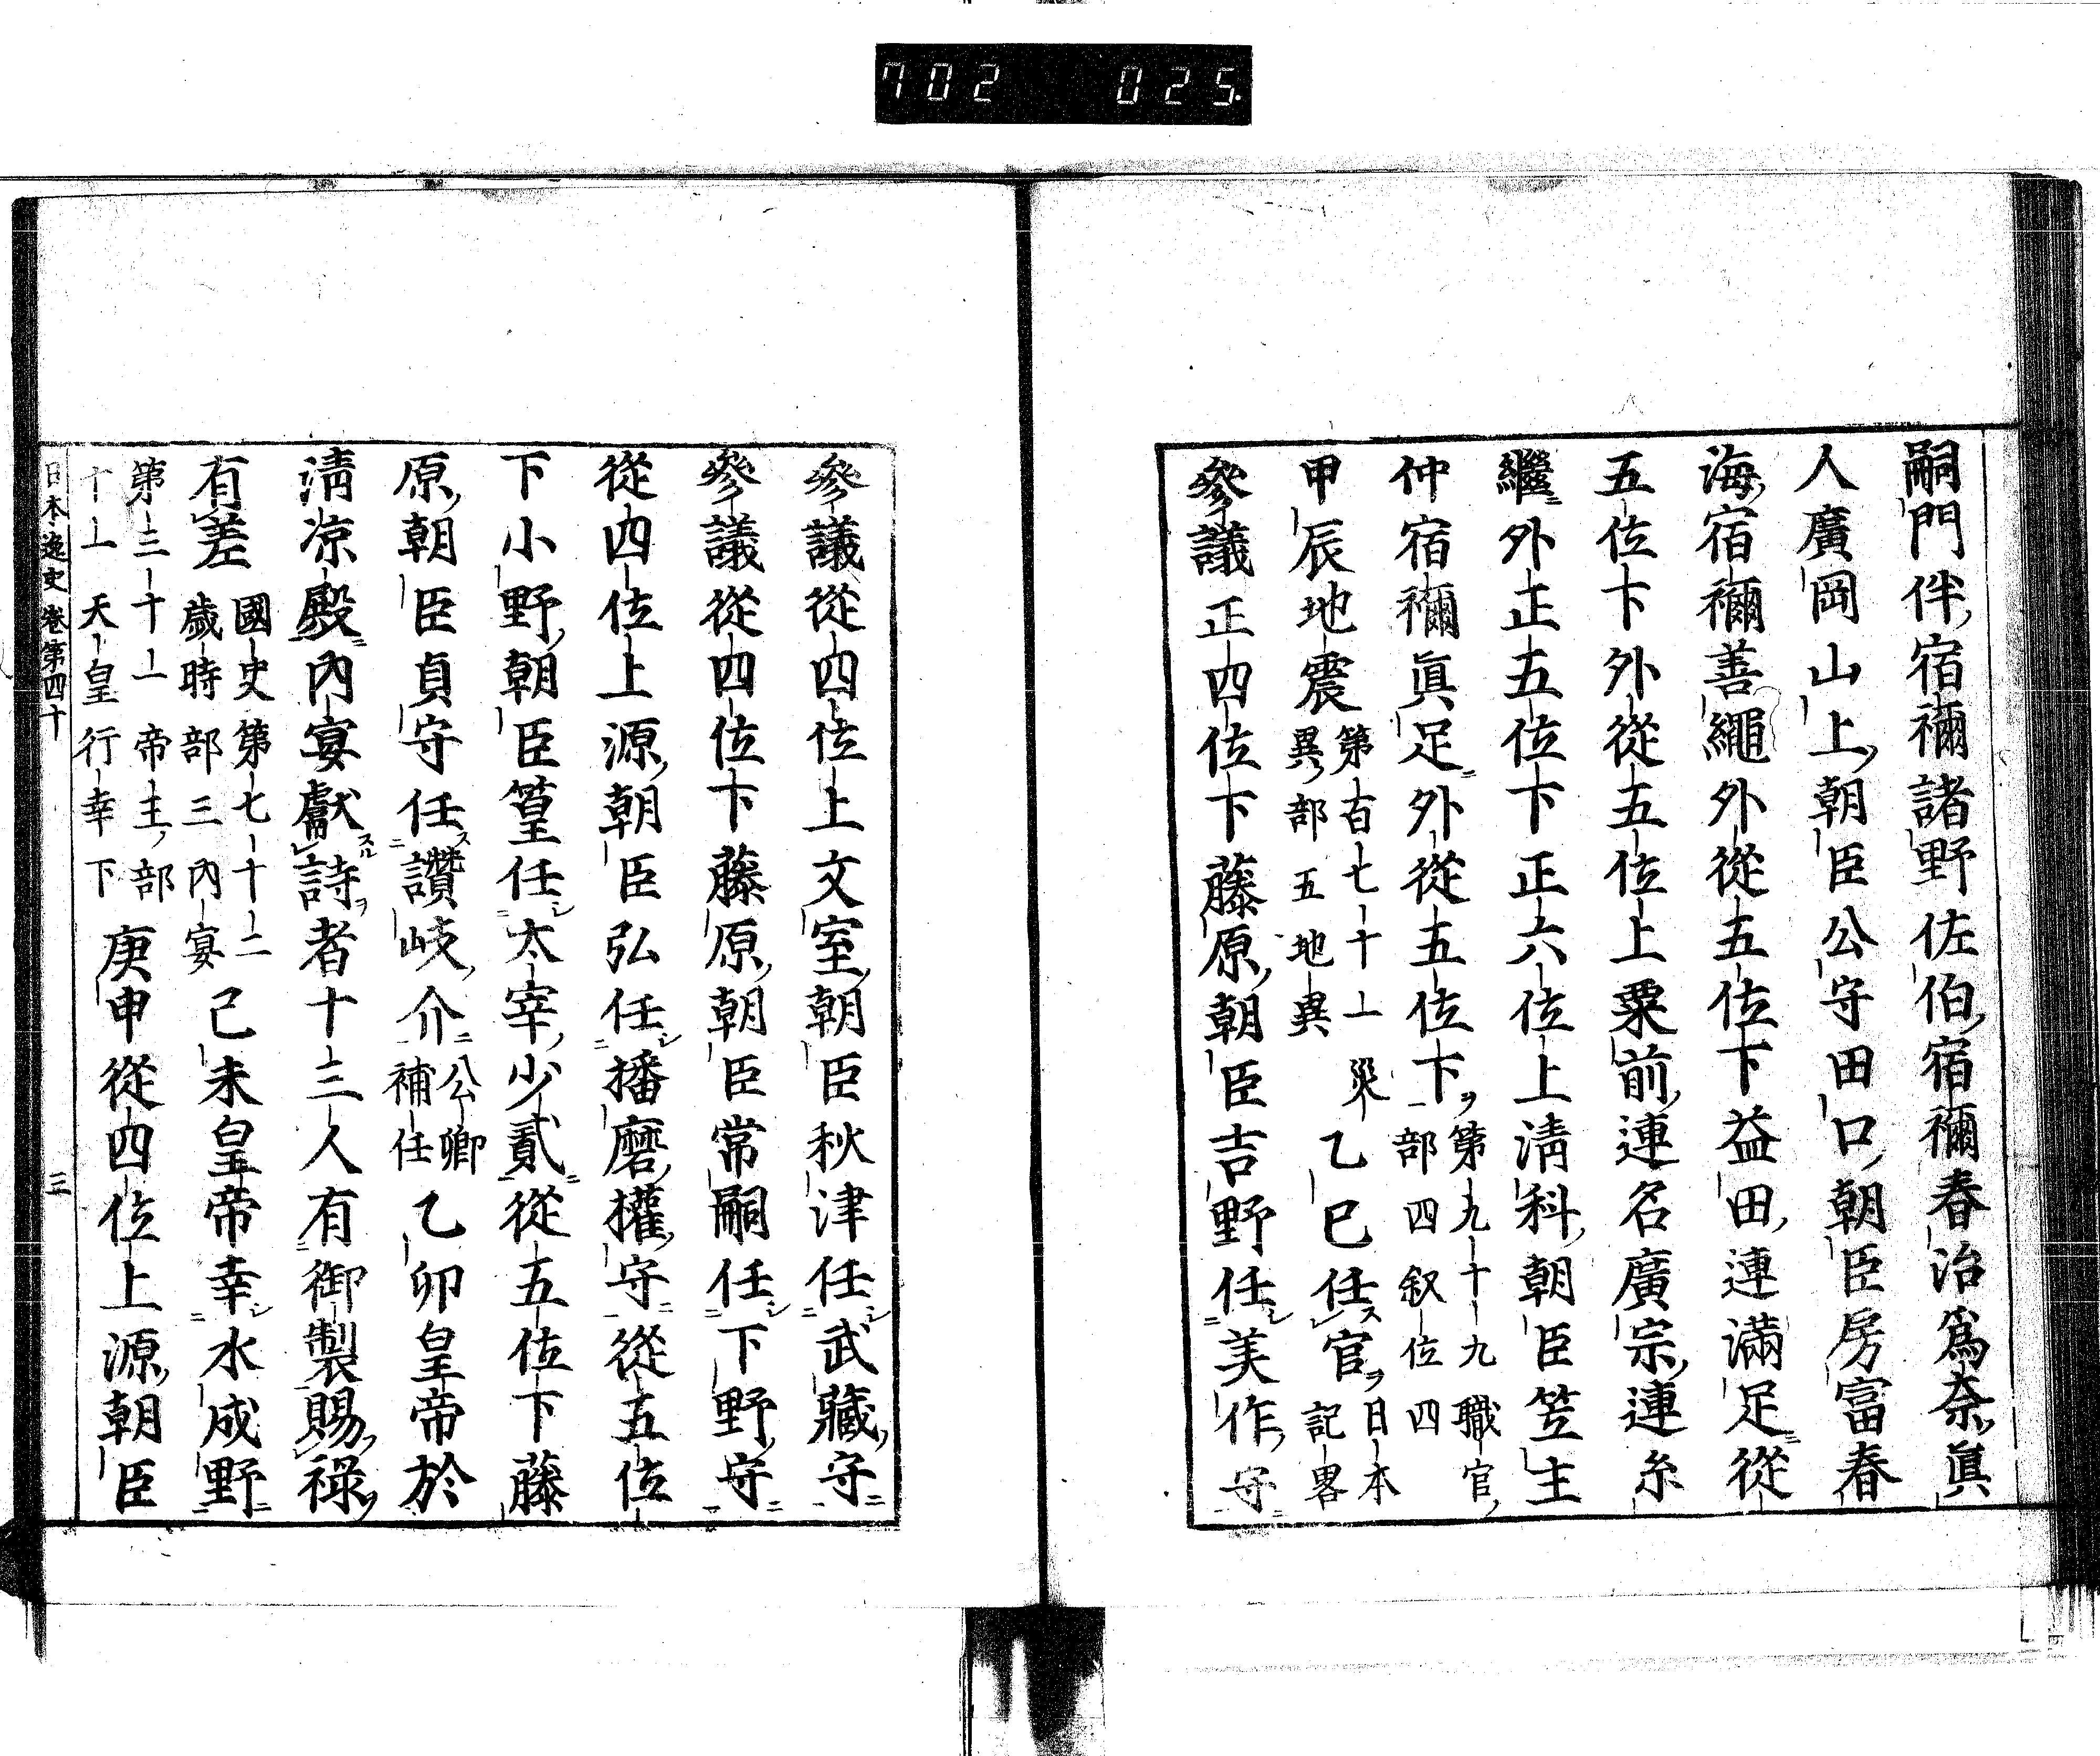 702 025
嗣門伴宿禰諸野佐伯宿禰春治爲奈眞
人廣岡山上朝臣公守田口朝臣房富春
海宿禰善繩外從五位下益田連滿足從
五位下外從五位上粟前連名廣宗連糸
繼外正五位下正六位上淸科朝臣笠主
仲宿禰眞足外從五位下第九十九職官
部四叙位四
甲辰地震第百七十一災
異部五地異乙巳任官日本
記畧
參議正四位下藤原朝臣吉野任美作守
參議從四位上文室朝臣秋津任武藏守
參議從四位下藤原朝臣常嗣任下野守
從四位上源朝臣弘任播磨權守從五位
下小野朝臣篁任太宰少貳從五位下藤
原朝臣貞守任讚岐介公卿
補任乙卯皇帝於
淸凉殿內宴獻詩者十三人有御製賜祿
有差國史第七十二
歲時部三內宴己未皇帝幸水成野
第三十一帝王部
十一天皇行幸下庚申從四位上源朝臣
日本逸史卷第四十 三